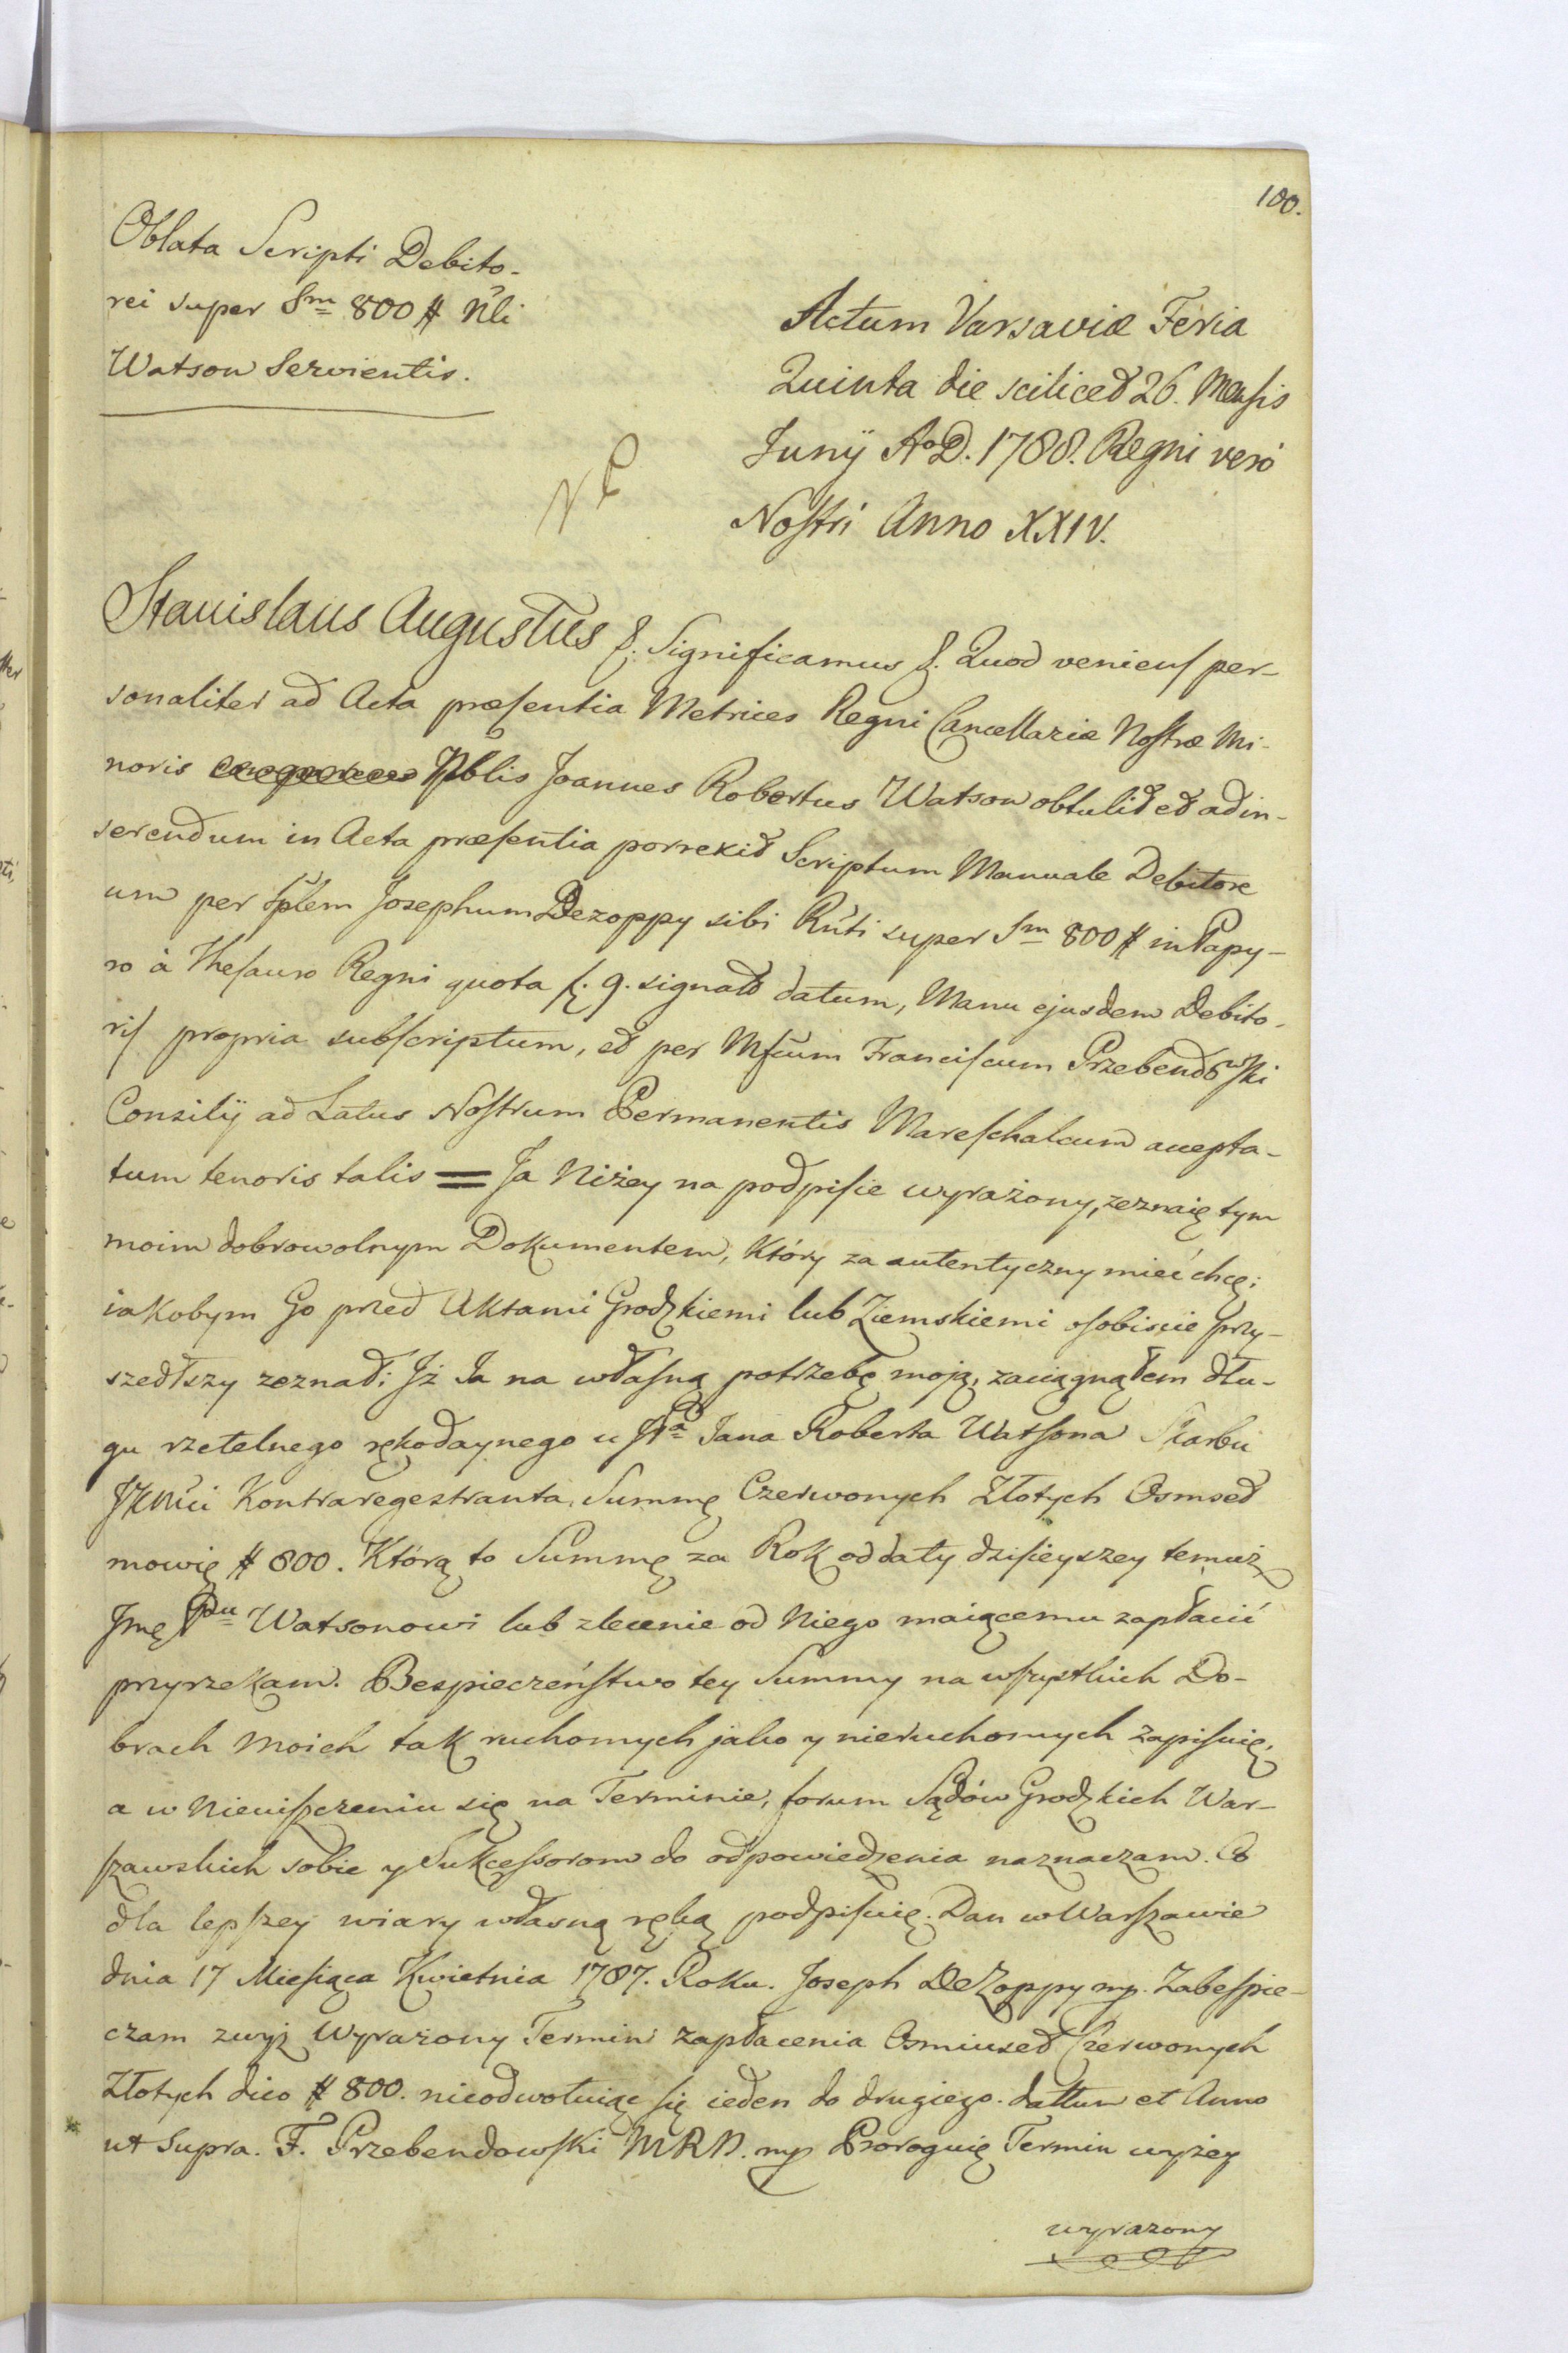 100.
Oblata Scripti Debito-
rei super Sm 800 # Nli
Watson Servientis.
Actum Varsaviæ Feria
Quinta die scilicet 26. Mensis
Junÿ Ao D. 1788. Regni verò
Nostri Anno XXIV.
Stanislaus Augustus &. Significamus &. Quod veniens per-
sonaliter ad Acta præsentia Metrices Regni Cancellariæ Nostræ Mi-
noris Nblis Joannes Robertus Watson obtulit et ad in-
serendum in Acta præsentia porrexit Scriptum Manuale Debitore
um per Splem Josephum Dezoppy sibi Rnti super Sm 800 # in Papy-
ro à Thesauro Regni quota f. 9. signato datum, Manu ejusdem Debito-
ris propria subscriptum, et per Mfcum Franciscum Przebendowski
Consilÿ ad Latus Nostrum Permanentis Mareschalcum accepta-
tum tenoris talis = Ja Niżey na podpisie wyrażony, zeznaię tym
moim dobrowolnym Dokumentem, który za autentyczny mieć chcę;
iakobym Go przed Aktami Grodzkiemi lub Ziemskiemi osobiscie przy-
szedłszy zeznał; Jż Ja na własną potrzebę moją, zaciągnąłem dłu-
gu rzetelnego rękodaynego u JPa Jana Roberta Watsona Skarbu
JKMci Kontraregestranta, Summę Czerwonych Złotych Osmset
mowię # 800. Którą to Summę za Rok od daty dzisieyszey temuż
Jmę Pnu Watsonowi lub zlecenie od Niego maiącemu zapłacić
przyrzekam. Bespieczeństwo tey Summy na wszystkich Do-
brach Moich tak ruchomych jako y nieruchomych zapisuię,
a w Nieuiszczeniu się na Terminie, forum Sądów Grodzkich War-
szawskich sobie y Sukcessorom do odpowiedzenia naznaczam. Co
dla lepszey wiary własną ręką podpisuię. Dan w Warszawie
dnia 17 Miesiąca Kwietnia 1787. Roku. Joseph DeZoppy mp. Zabespie-
czam zwyż Wyrażony Termin zapłacenia Osmiuset Czerwonych
Złotych dico # 800. nieodwołuiąc się ieden do drugiego. dattum et Anno
ut Supra. F. Przebendowski MRN. mp Proroguię Termin wyżey
wyrazony